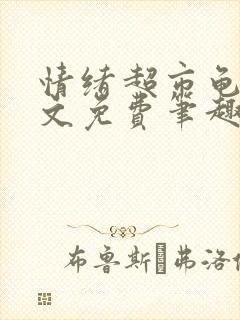 情绪超市龟
文免费笔趣
布鲁斯弗洛伊